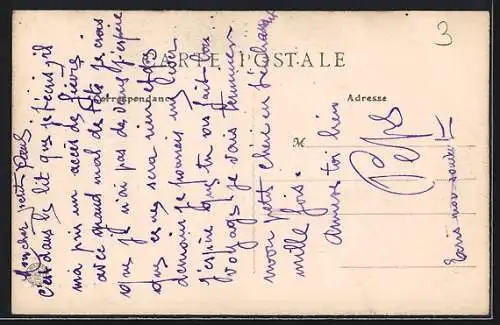 CARTE POSTALE
Correspondance
Adresse
M
3
Mon cher petit Paul
c'est dans le lit que je t'écris, j'ai
ma pris un accès de fièvre
avec grand mal de tête je crois
que je n'ai pas de veine j'espère
que ce ne sera rien et que
demain je pourrais me lever
j'espère que tu as fait bon
voyage, je vais terminer
mon petit chéri en t'embrassant
mille fois.
Amuse toi bien